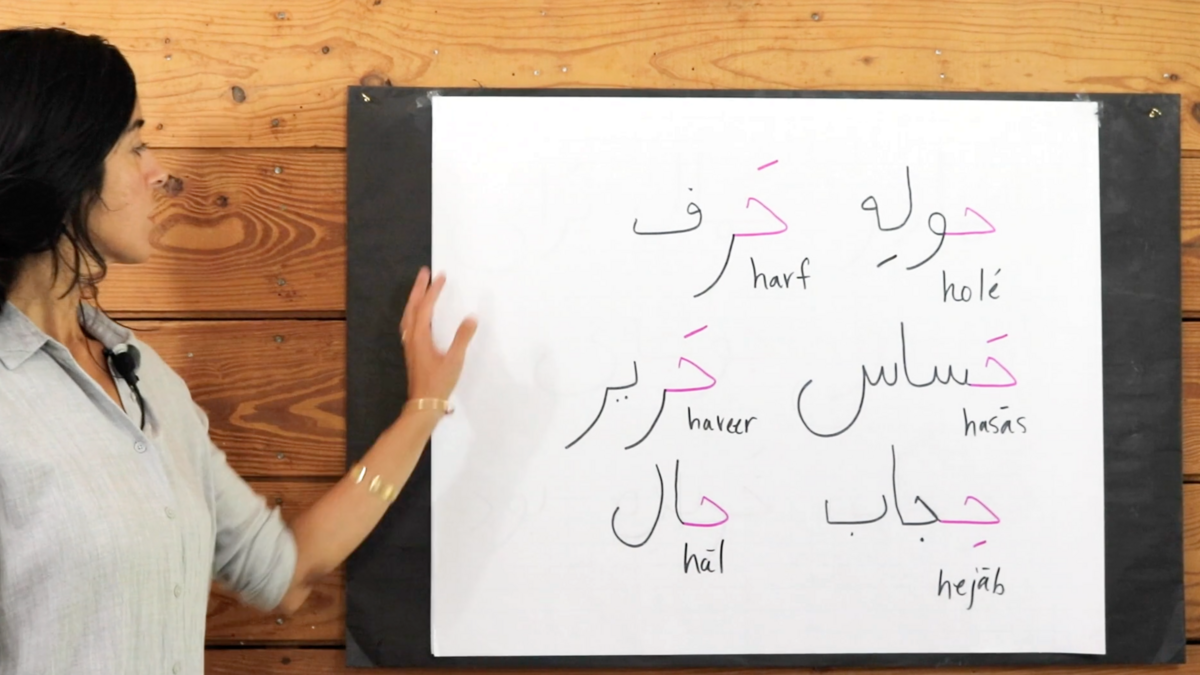 حولِه حَرف
harf holé
حَساس حَریر
hareer hasās
حِجاب حال
hāl hejāb